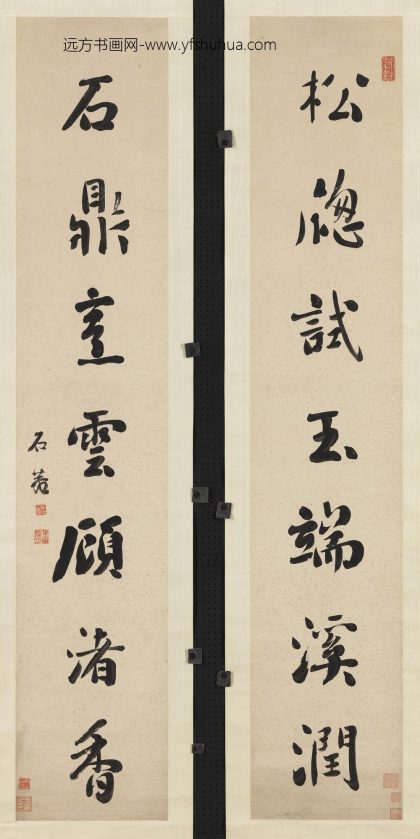 远方书画网-www.yfshuhua.com
松牕試玉端溪潤
石鼎烹雲顧渚香
石菴